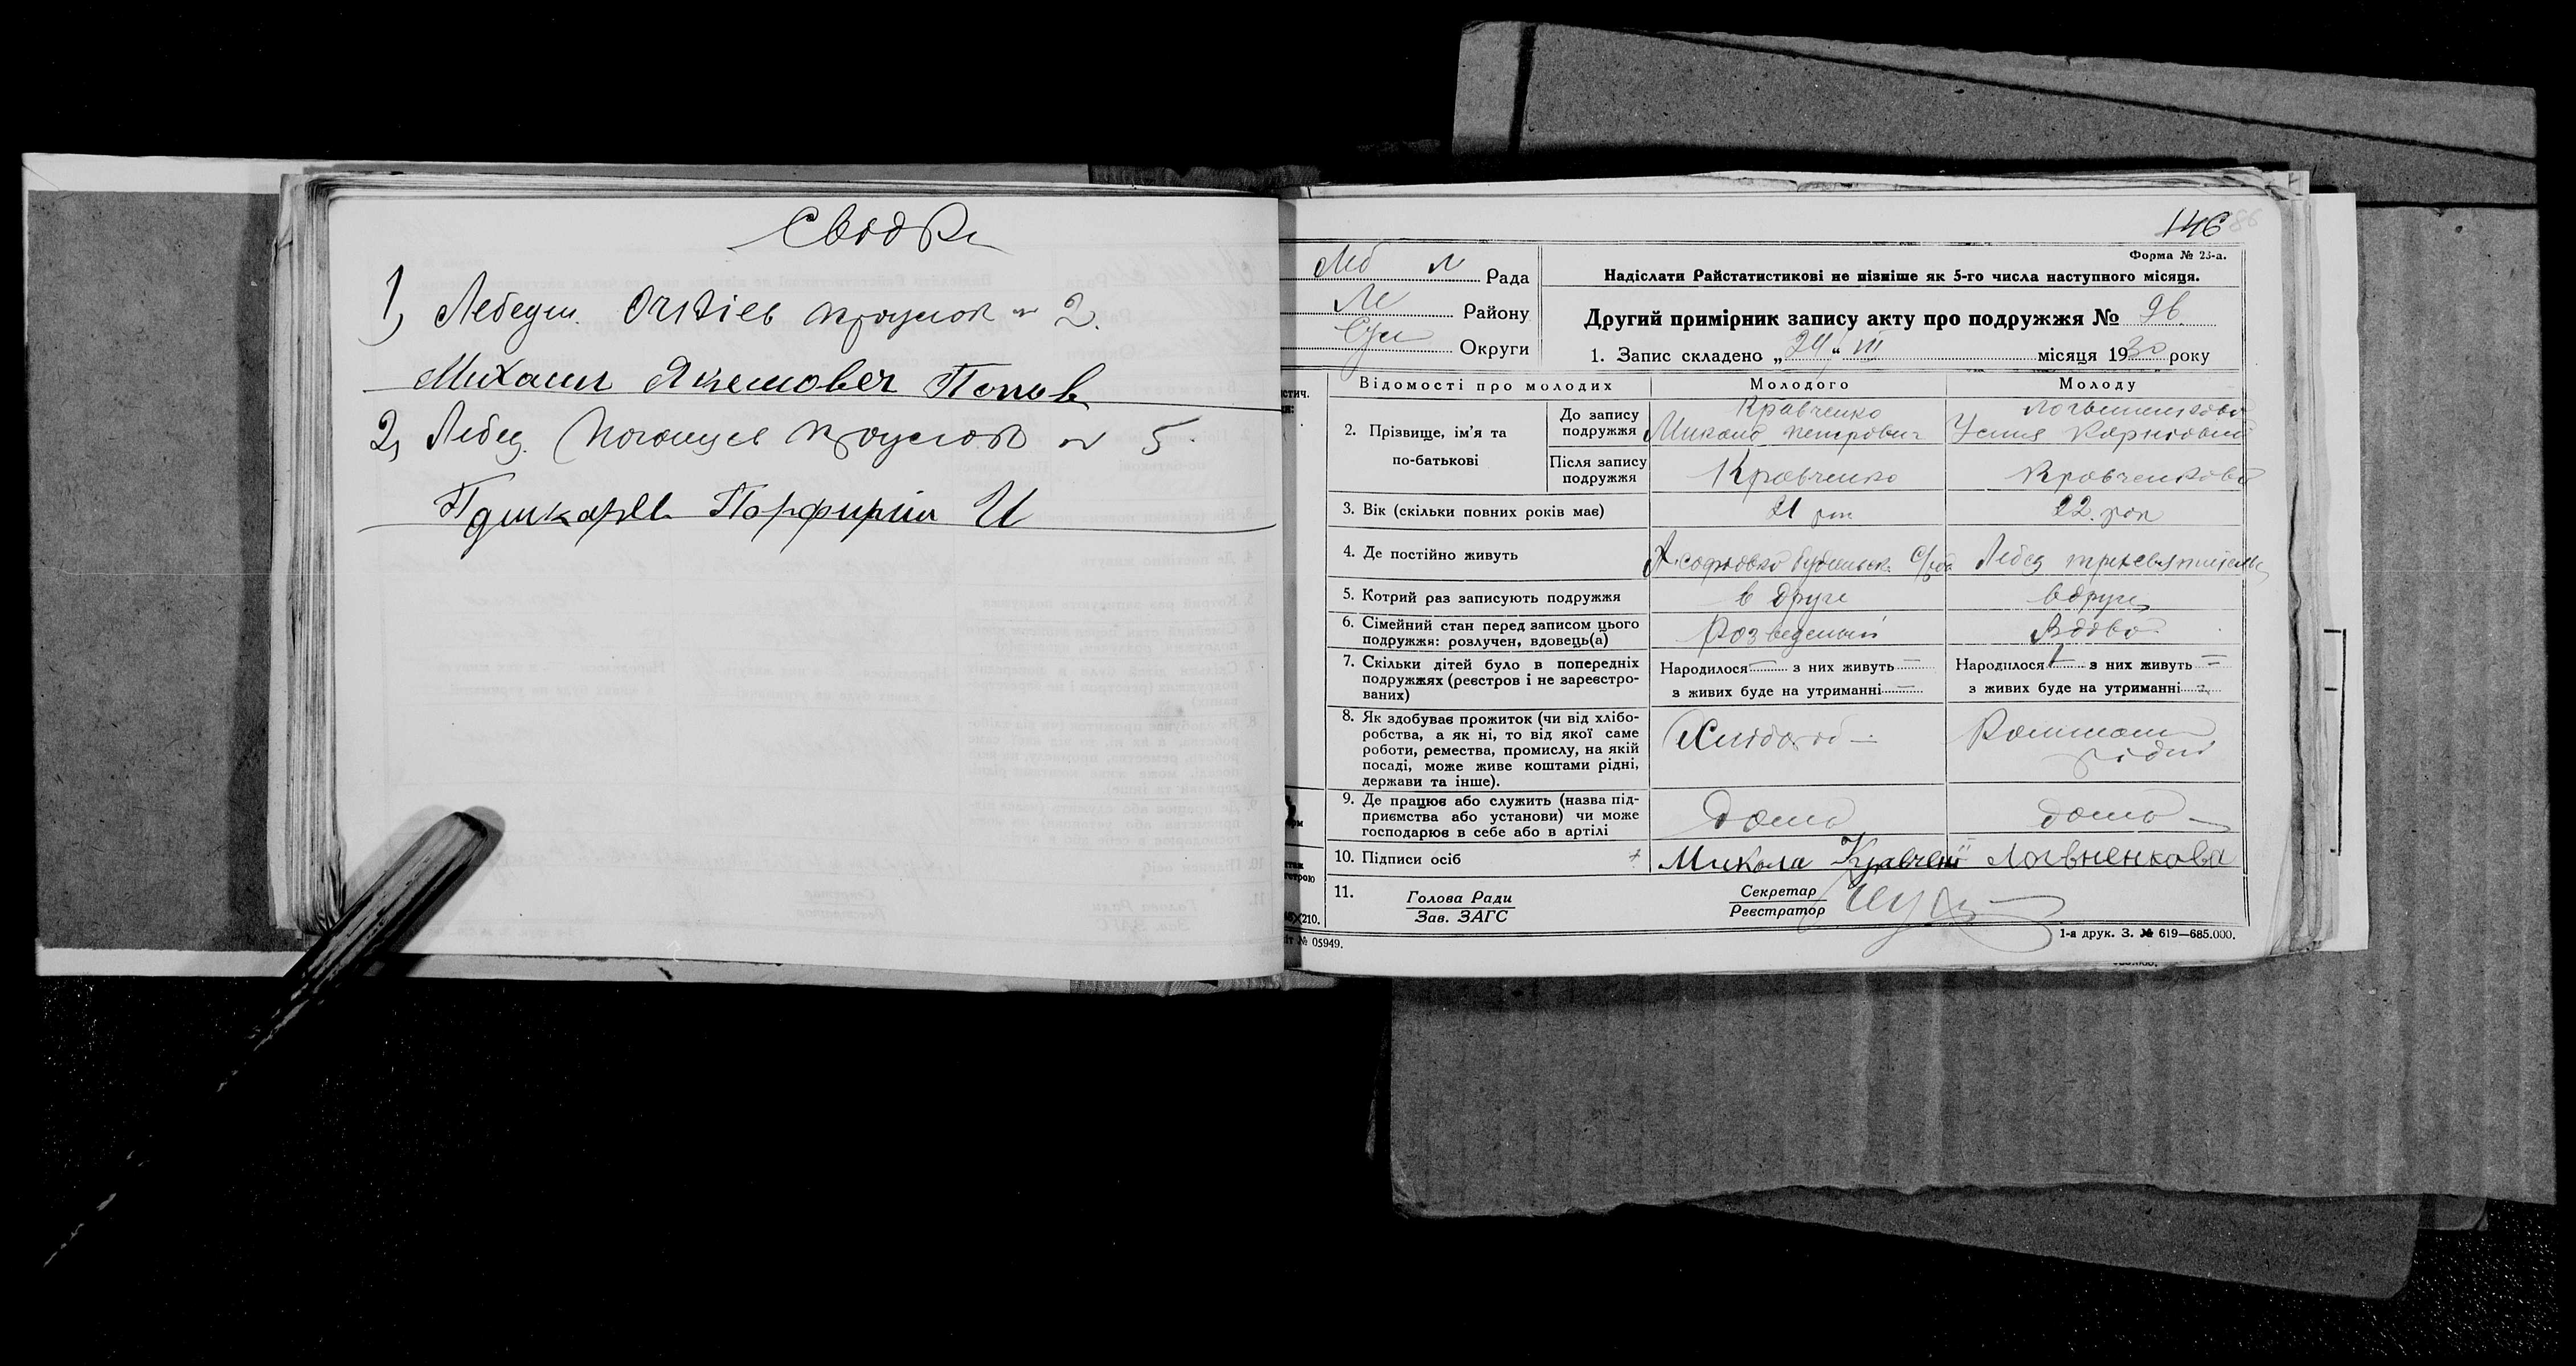 Свідки
1) Лебедин. провулок № 2.
Михаил Якимович Попов
2) Лебед. провулок № 5.
Порфирий И
146
Форма № 23-а.
Леб Рада
Ле Району
Сум Округи
Надіслати Райстатистикові не пізніше як 5-го числа наступного місяця.
Другий примірник запису акту про подружжя № 96
1. Запис складено „24/ III місяця 1930 року
Відомості про молодих
Молодого
Молоду
2. Прізвище, ім'я та по-батькові
До запису подружжя
Кравченко
Микола Петрович
Логвиненкова
Устия Карповна
Після запису подружжя
Кравченко
Кравченкова
3. Вік (скільки повних років має)
21 рік
22 рік
4. Де постійно живуть
Х. Софіовка С/рада
Лебед
5. Котрий раз записують подружжя
в друге
вдруге
6. Сімейний стан перед записом цього
подружжя: розлучен, вдовець(а)
Розведений
Вдова
7. Скільки дітей було в попередніх
подружжях (реєстров і не зареєстро-
ваних)
Народилося — з них живуть —
з живих буде на утриманні —
Народилося 1 з них живуть —
з живих буде на утриманні —
8. Як здобуває прожиток (чи від хлібо-
робства, а як ні, то від якої саме
роботи, ремества, промислу, на якій
посаді, може живе коштами рідні,
держави та інше).
Хлібороб —
Коштами
рідні
9. Де працює або служить (назва під-
приємства або установи) чи може
господарює в себе або в артілі
дома
дома —
10. Підписи осіб
Микола Кравченко
Логвненкова
11.
Голова Ради
Зав. ЗАГС
Секретар
Реєстратор
№ 05949.
1-а друк. З. № 619—685.000.